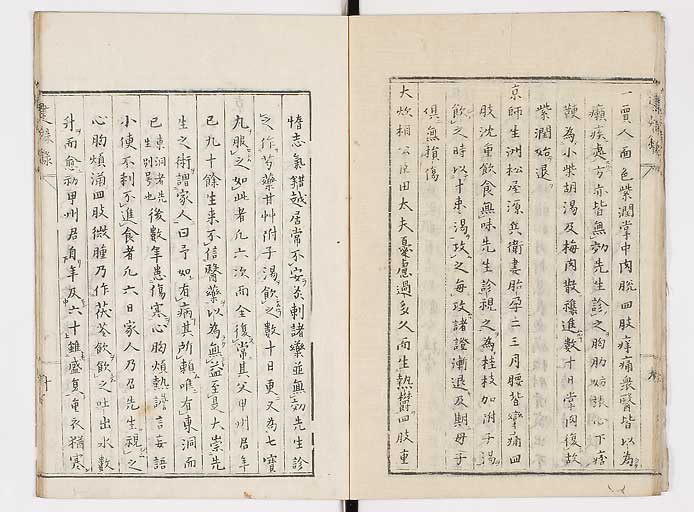 一賈人面色紫潤掌中肉脱四肢痒痛衆醫皆以為
癩疾處方亦皆無効先生診之胸肋妨張心下痞
鞕為小柴胡湯及梅肉散雜進數十日掌肉復故
紫潤始退
京師生洲松屋源兵衛妻胎孕二三月腰背攣痛四
肢沈重飲食無味先生診視之為桂枝加附子湯
飲之時以十棗湯攻之毎攻諸證漸退及期母子
俱無損傷
大炊相公田太夫憂慮過多久而生熱鬱四肢重
惰志氣錯越居常不安灸刺諸藥並無効先生診
之作芍藥甘艸附子湯飲之數十日更又為七寶
丸服之如此者凡六次而全復常其父甲州居年
已九十餘生来不信醫藥以為無益至是大崇先
生之術謂家人曰予如有病其所賴唯有東洞而
已東洞者先生別号也後數年患傷寒心胸煩熱譫言妄語
小便不利不進食者凡六日家人乃召先生視之
心胸煩滿四肢微腫乃作茯苓飲飲之吐出水數
升而愈初甲州君自年及六十雖盛夏重衣猶寒